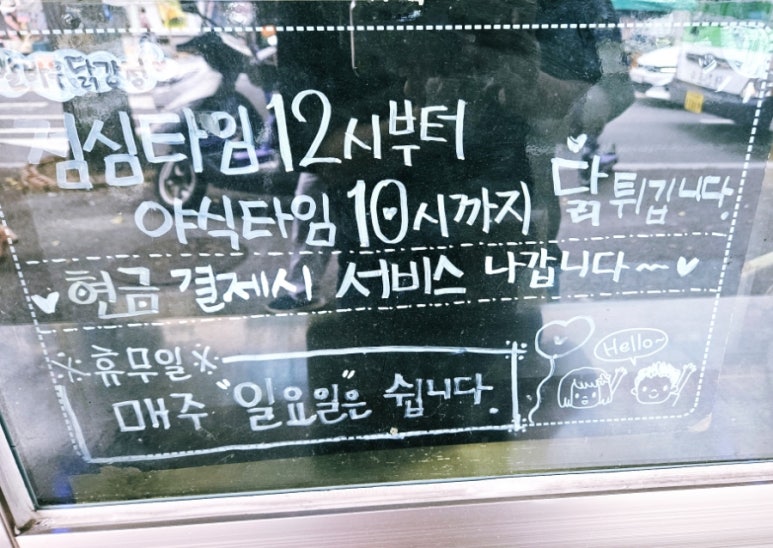 닭강정
점심타임 12시부터
야식타임 10시까지 닭 튀깁니다.
현금 결제시 서비스 나갑니다~
※휴무일※
매주 "일요일"은 쉽니다.
Hello~